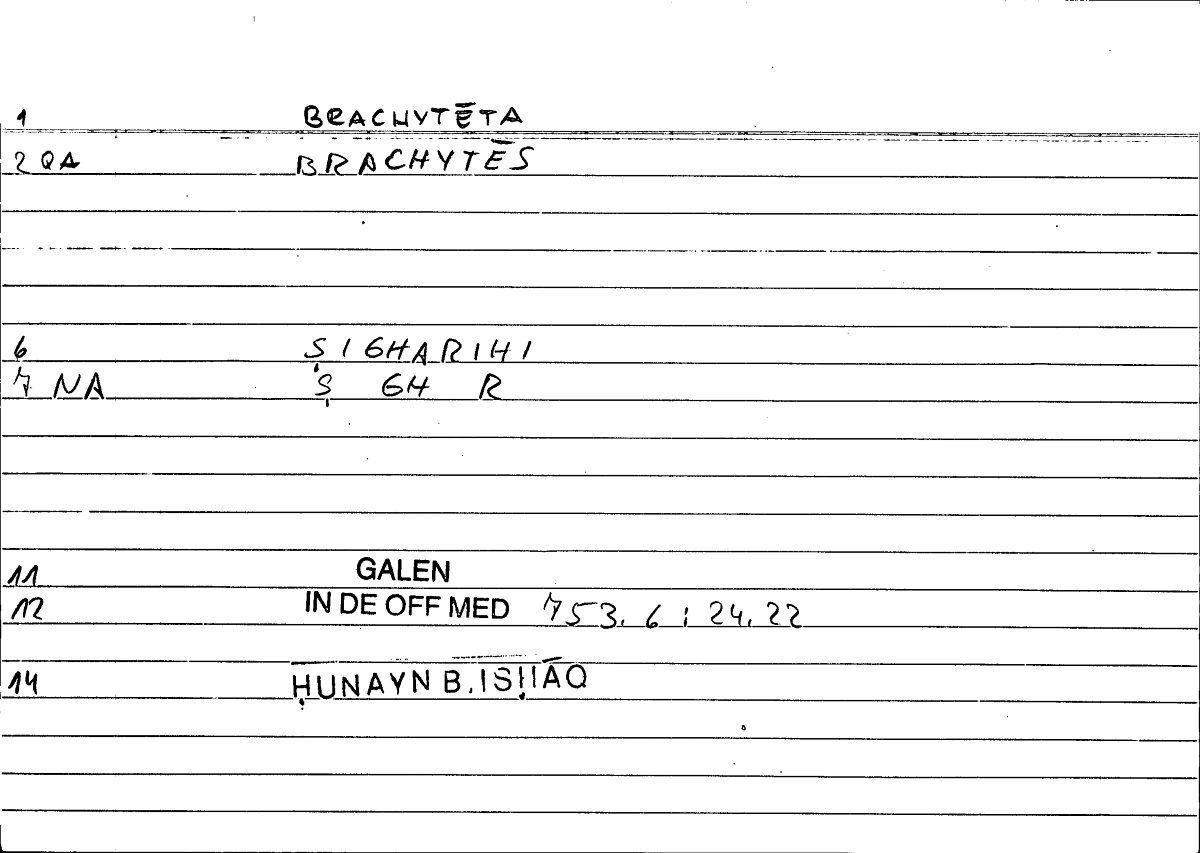 1 BRACHYTĒTA
2 QA BRACHYTĒS
6 ṢIGHARIHI
7 NA Ṣ GH R
11 GALEN
12 IN DE OFF MED 753.6 ; 24.22
14 ḤUNAYN B. ISḤĀQ